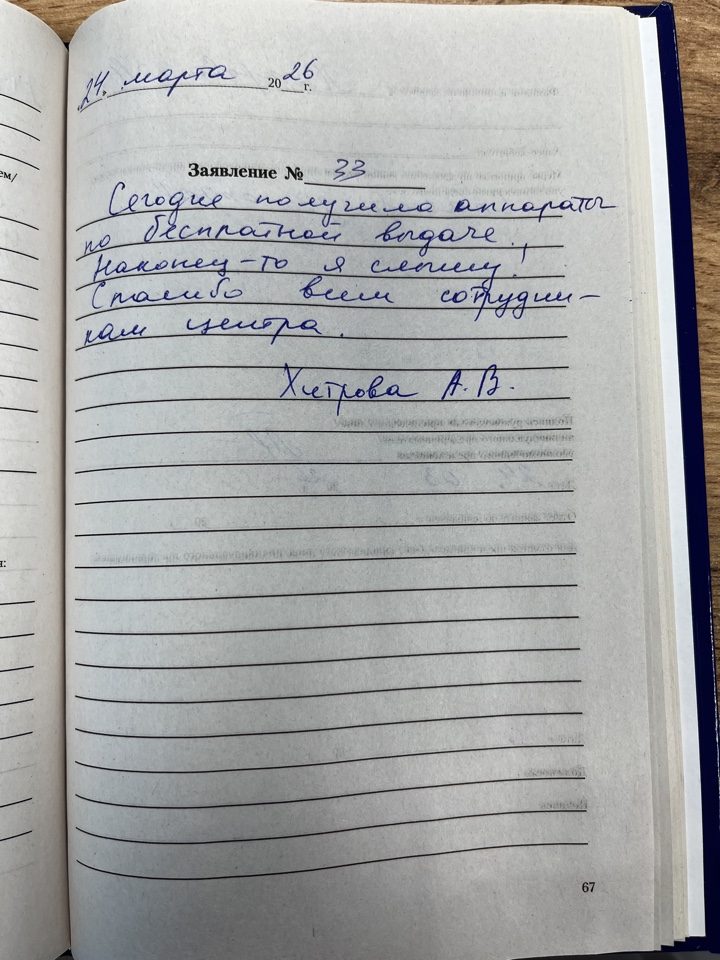 24. марта 2026 г.
Заявление № 33
Сегодня получила аппараты
по бесплатной выдаче.
Наконец-то я слышу!
Спасибо всем сотрудни-
кам центра.
Хитрова А. В.
67